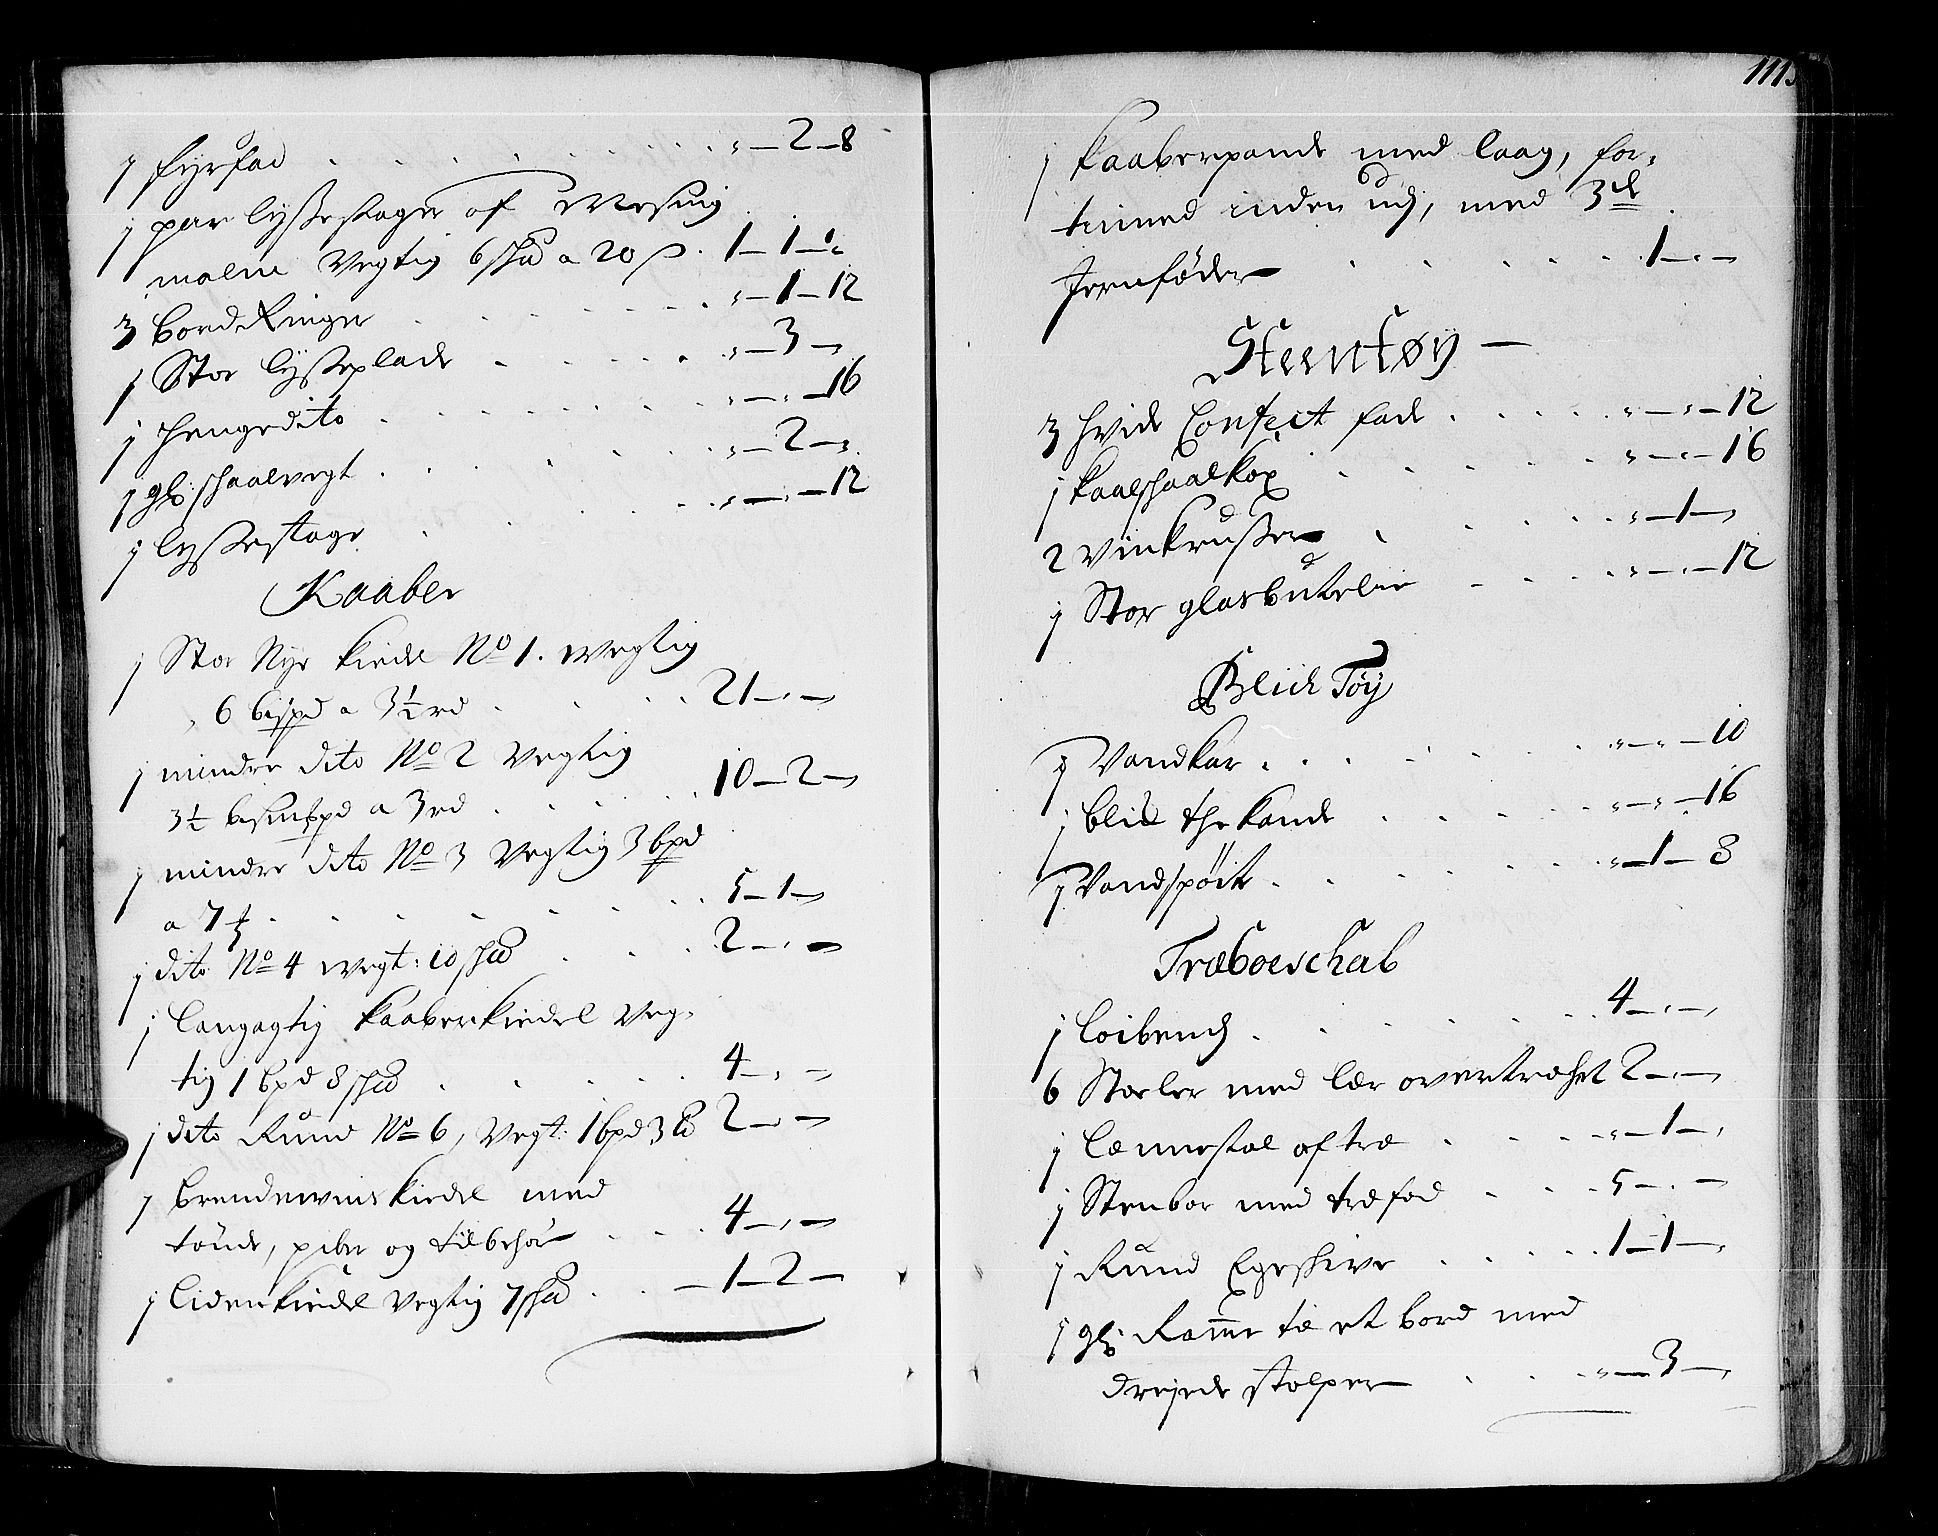 1 fyrfad . . . . . . . „ — 2 — 8
1 par lyssestager af Messing
malm Vegtig 6 sk℔ a 20 s. 1 — 1 — „
3 bordRinger . . . . . „ — 1 — 12
1 Stor lysseplade . . . . „ — 3 —
1 henge dito . . . . . „ — „ — 16
1 gl: schaalvegt . . . . . „ — 2 — „
1 lyssestage . . . . . „ — „ — 12
Kaaber
1 Stor Nye kiedel No 1. Wegtig
6 bispd a 3½ rd . . . 21 — „ —
1 mindre dito No 2 Vegtig
3½ bismpd a 3 rd . . . 10 — 2 — „
1 mindre dito No 3 Vegtig 3 bpd
a 7 . . . . . . 5 — 1 — „
1 dito No 4 Wegt: 10 sk℔ . . . 2 — „ —
1 langagtig kaaberkiedel Veg-
tig 1 bpd 8 sk℔ . . . . . 4 — „ —
1 dito Rund No 6, Vegt: 1 bpd 3 ℔ 2 — „ —
1 brendewinskiedel med
tönde, piber og tilbehör . . . 4 — „ —
1 liden kiedel Vegtig 7 sk℔ . . — 1 — 2 —
111
1 kaaberpande med laag, for-
tinned inden udj, med 3de
Jernföder . . . . . 1 — „ —
Steentøy —
3 hvide Confect fade . . . . „ — „ — 12
1 kaalschaalkop . . . . „ — „ — 16
2 Vinkrusser . . . . „ — 1 — „
1 Stor glasbutelie . . . . „ — „ — 12
Blick Tøy
1 Vandkar . . . . . „ — „ — 10
1 blik the kande . . . . „ — „ — 16
1 Vandspöite . . . . . „ — 1 — 8
Træboeschab
1 löibench . . . . . 4 — „ — „
6 Stoeler med lær overtrækt 2 — „ —
1 lænnestoel af træ . . . . „ — 1 — „
1 Stenbor med træfod . . . 5 — „ —
1 Rund Egeskive . . . . 1 — 1 — „
1 gl: Ramme til et bord med
drejede stolper . . . „ — 3 — „